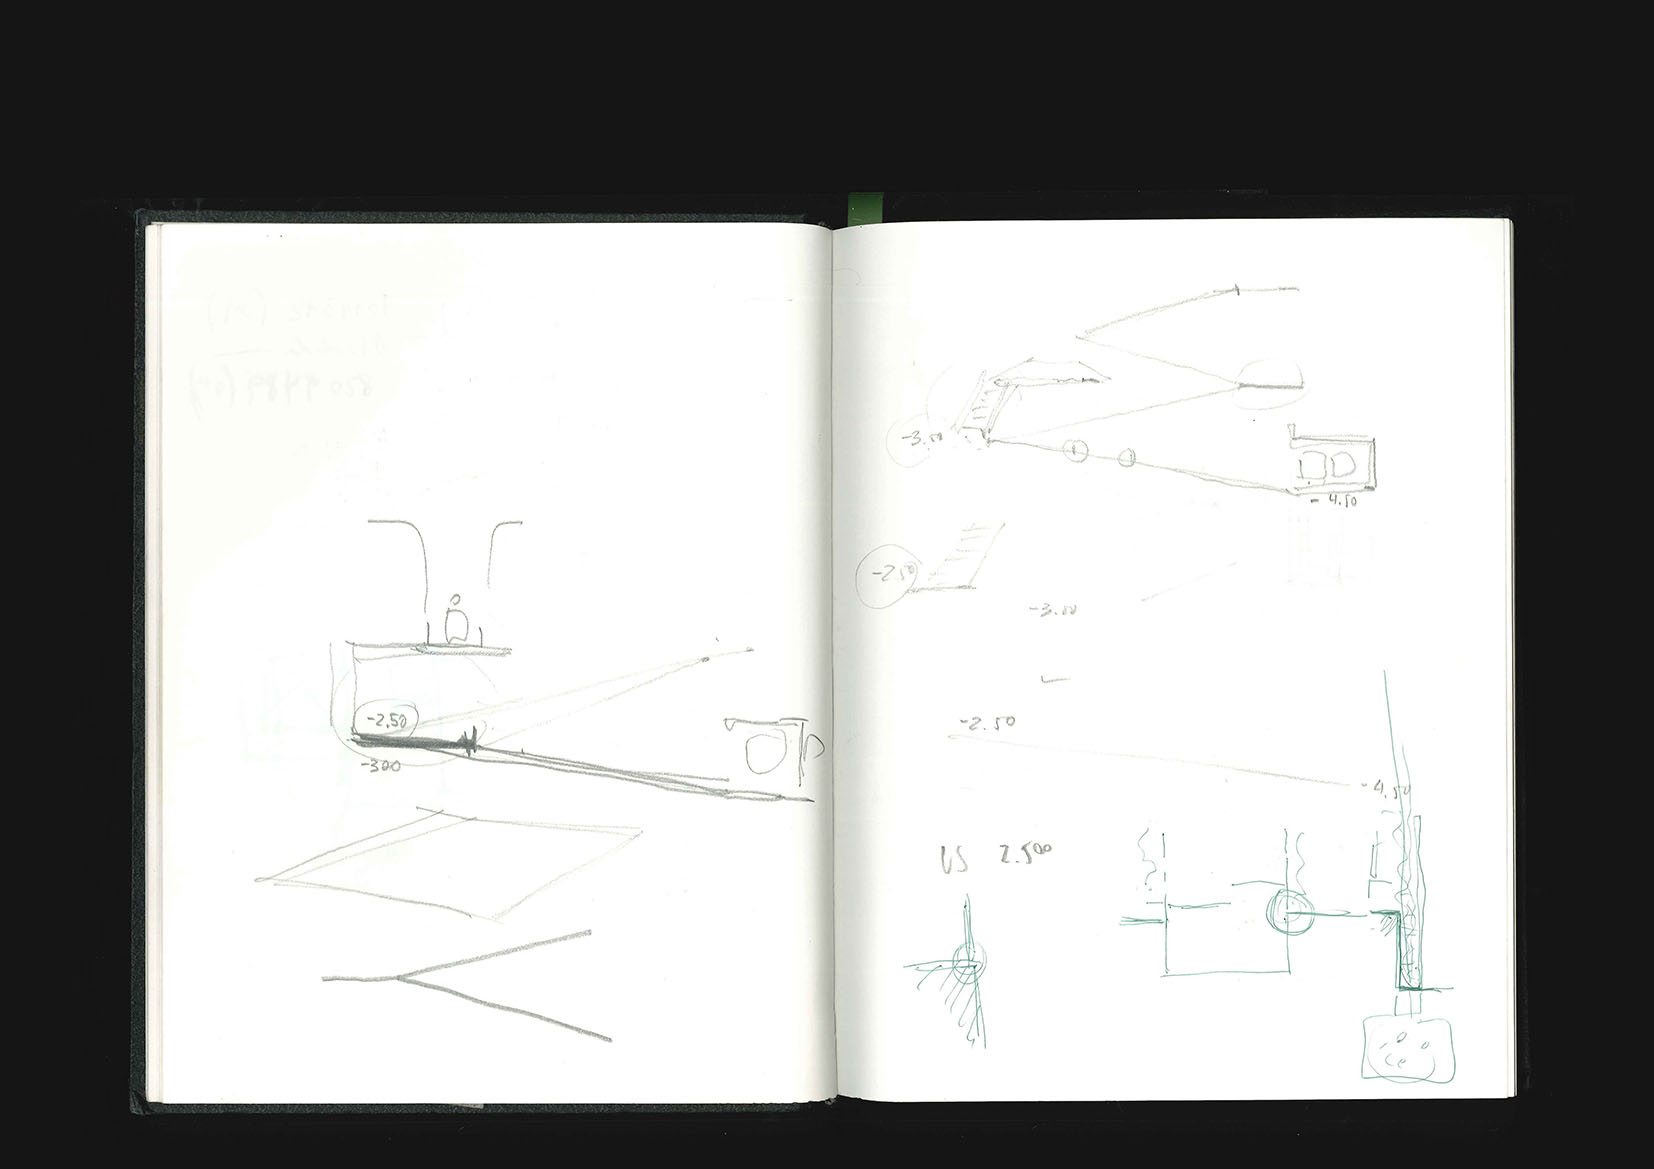 -2.50
-300
-3.50
-4.50
-2.50
-3.00
-2.50
-4.50
VS 2.500